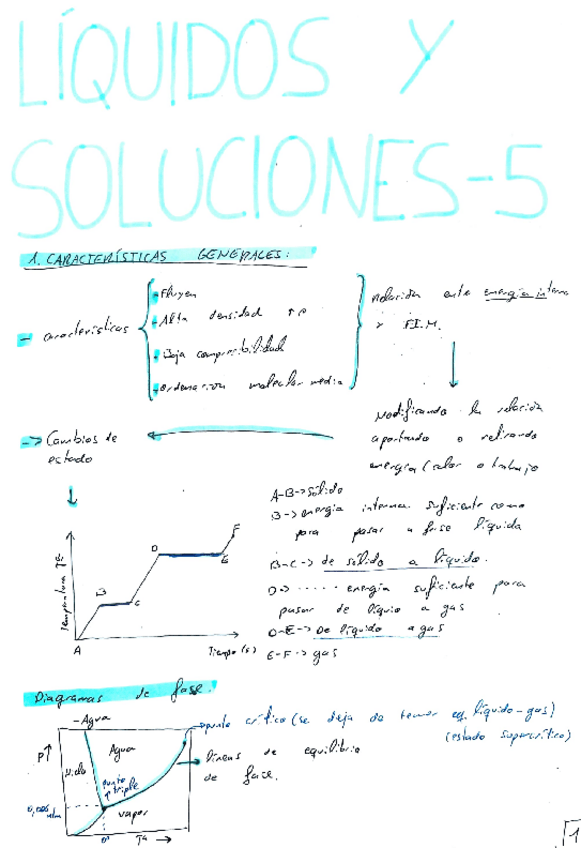 LÍQUIDOS Y
SOLUCIONES-5
1. CARACTERÍSTICAS GENERALES:
- características
- Fluyen
- Alta densidad ↑ρ
- Baja compresibilidad
- Ordenación molecular media
Relación entre energía interna
y F.I.M.
Modificando la relación
aportando o retirando
energía (calor o trabajo
-> Cambios de
estado
A-B -> sólido
B -> energía interna suficiente como
para pasar a fase líquida
B-C -> de sólido a líquido.
D -> ..... energía suficiente para
pasar de líquio a gas
D-E -> De líquido a gas
E-F -> gas
Temperatura
A
B
C
D
E
F
Tiempo (s)
Diagramas de fase:
- Agua
P↑
Agua
punto
triple
vapor
0,006
0°
Tª →
punto crítico (se deja de tener eq. líquido-gas)
(estado supercrítico)
líneas de equilibrio
de fase.
1